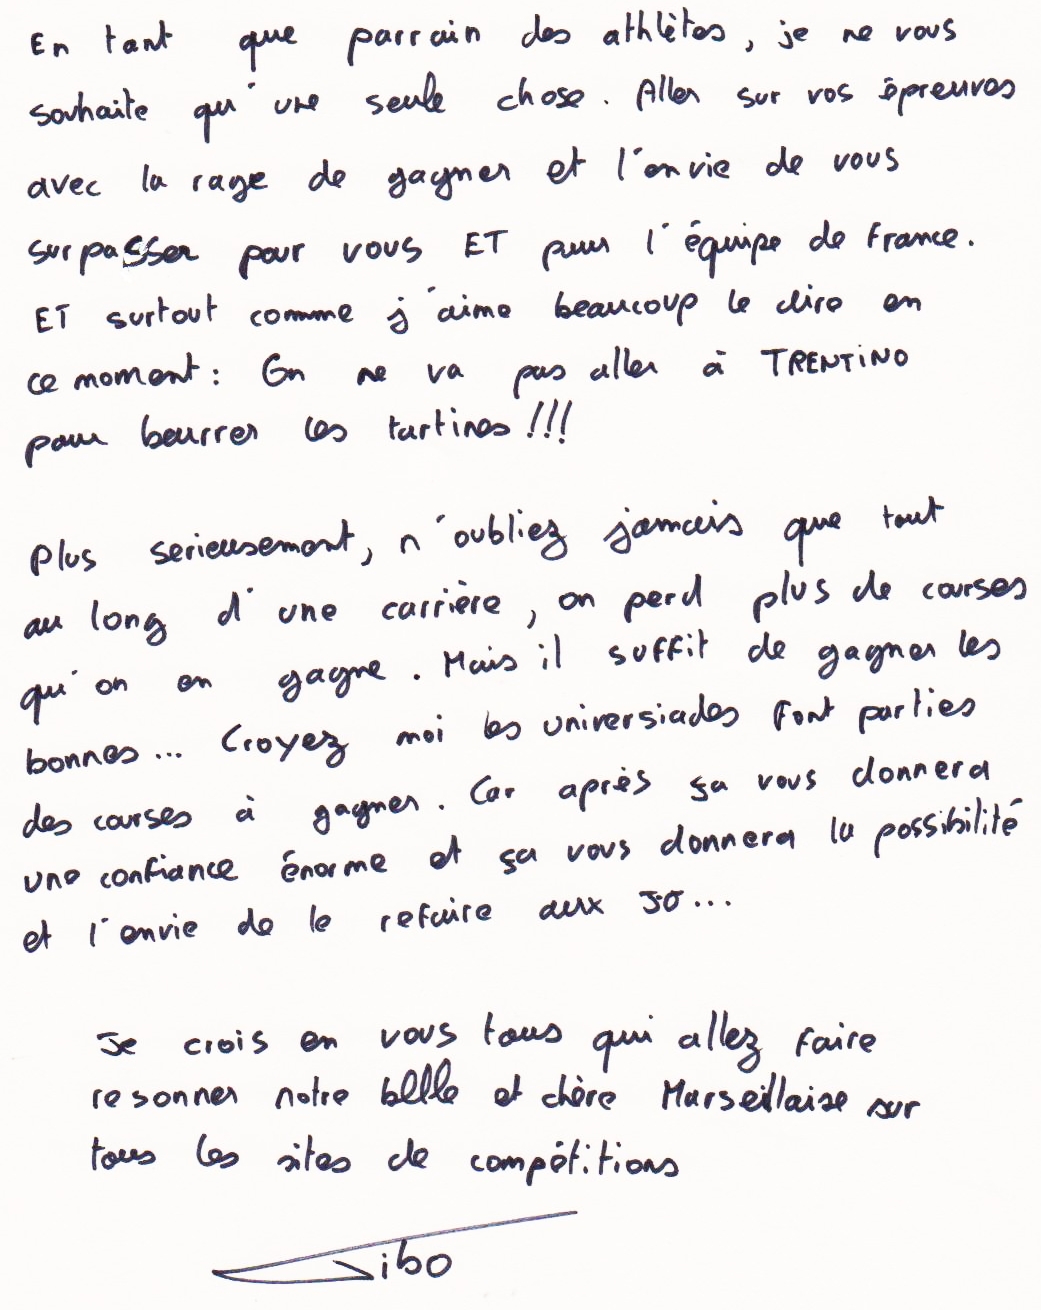 En tant que parrain des athlètes, je ne vous
souhaite qu'une seule chose. Aller sur vos épreuves
avec la rage de gagner et l'envie de vous
surpasser pour vous ET pour l'équipe de France.
ET surtout comme j'aime beaucoup le dire en
ce moment : On ne va pas aller à TRENTINO
pour beurrer les tartines !!!
Plus serieusement, n'oubliez jamais que tout
au long d'une carrière, on perd plus de courses
qu'on en gagne. Mais il suffit de gagner les
bonnes... Croyez moi les universiades font parties
des courses à gagner. Car après ça vous donnera
une confiance énorme et ça vous donnera la possibilité
et l'envie de le refaire aux JO...
Je crois en vous tous qui allez faire
resonner notre belle et chère Marseillaise sur
tous les sites de compétitions
Jibo